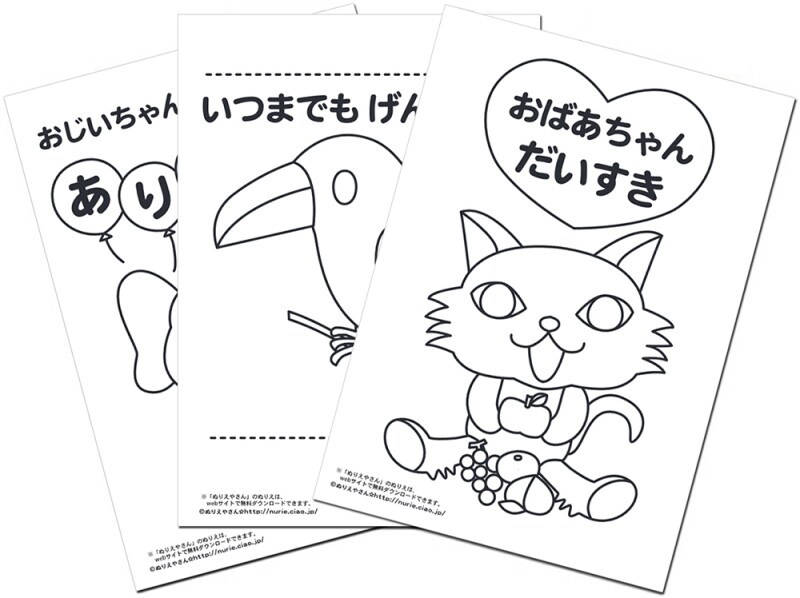 おじいちゃん
あり
※「ぬりえやさん」のぬりえは、
webサイトで無料ダウンロードできます。
©ぬりえやさん☆http://nurie.ciao.jp/
いつまでも げん
※「ぬりえやさん」のぬりえは、
webサイトで無料ダウンロードできます。
©ぬりえやさん☆http://nurie.ciao.jp/
おばあちゃん
だいすき
※「ぬりえやさん」のぬりえは、
webサイトで無料ダウンロードできます。
©ぬりえやさん☆http://nurie.ciao.jp/